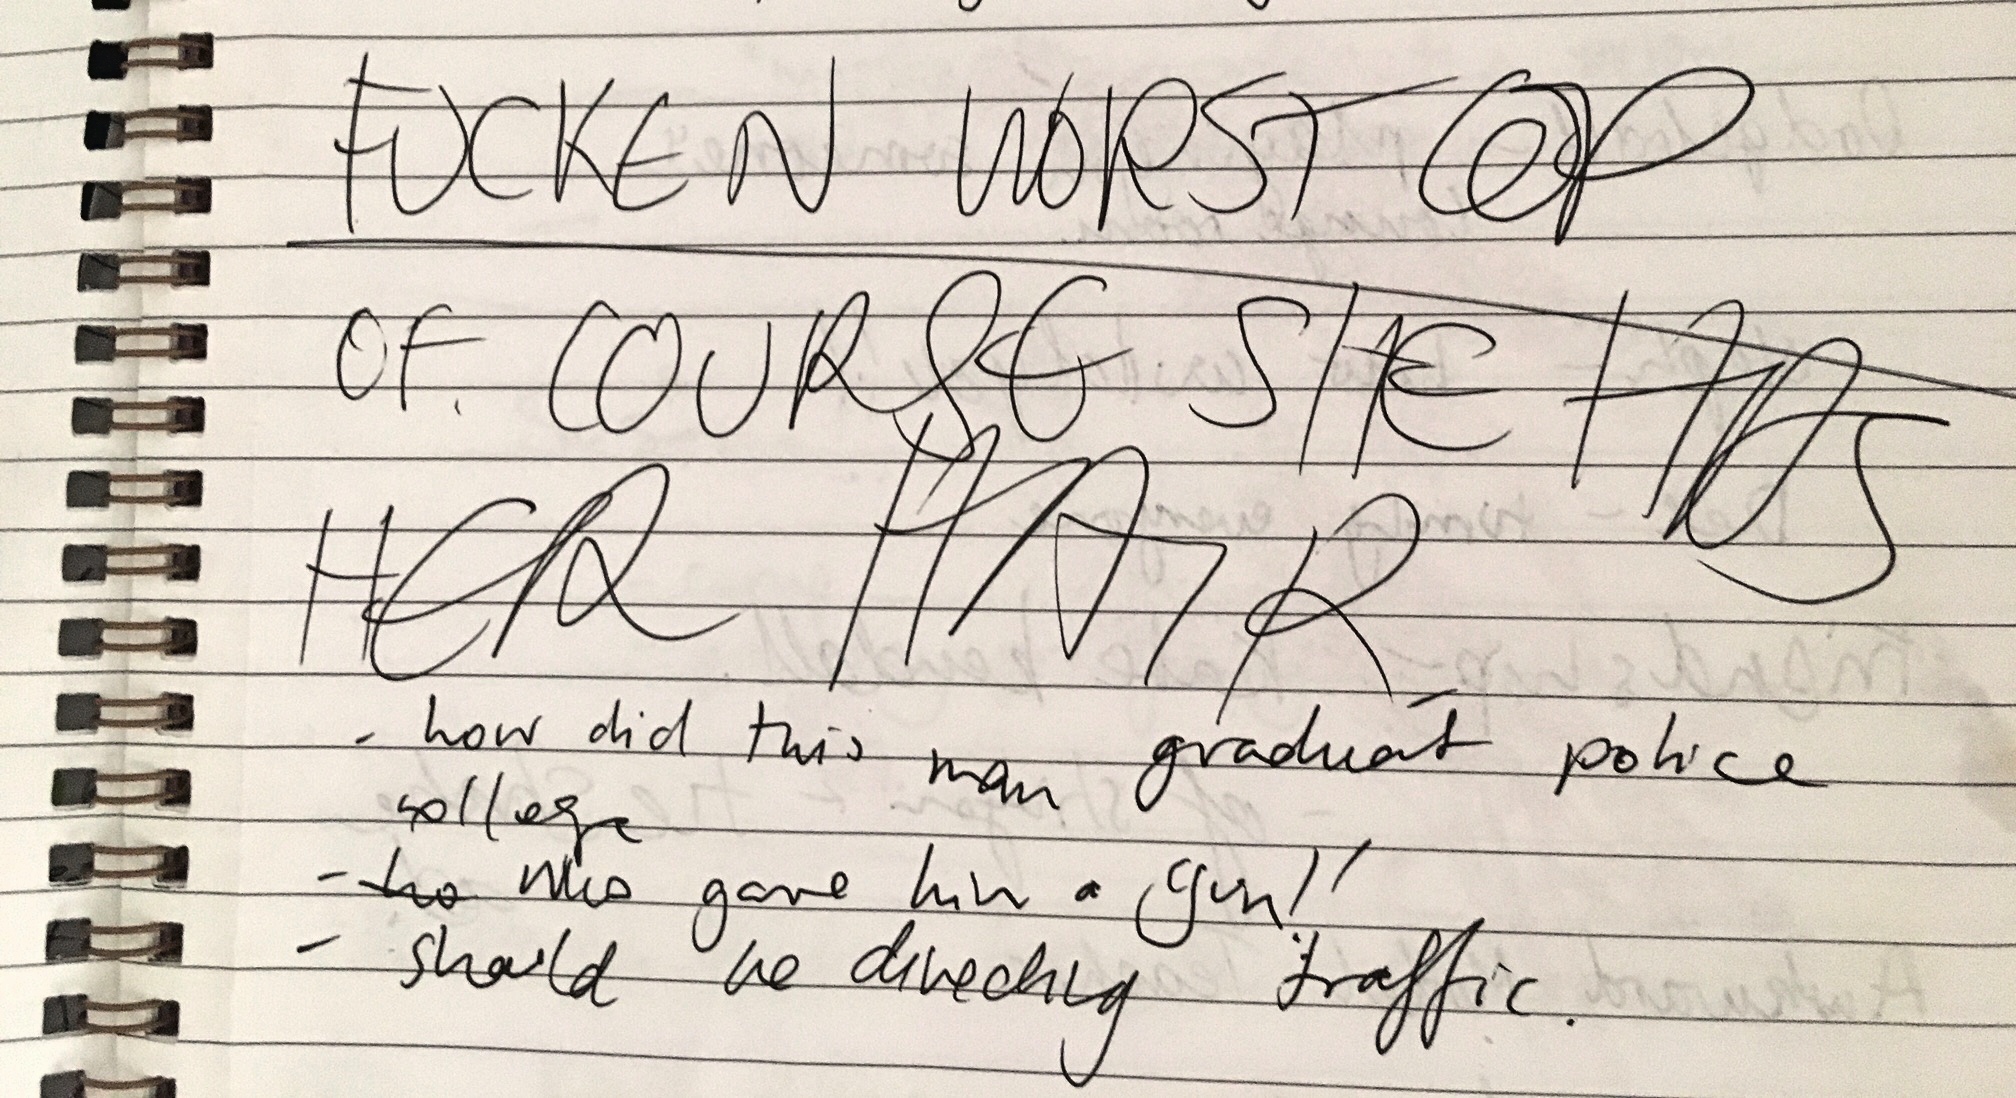 FUCKEN WORST COP
OF COURSE SHE HAS
HER HAIR
- how did this man graduate police
college
- ho who gave him a gun!!
- should be directing traffic.